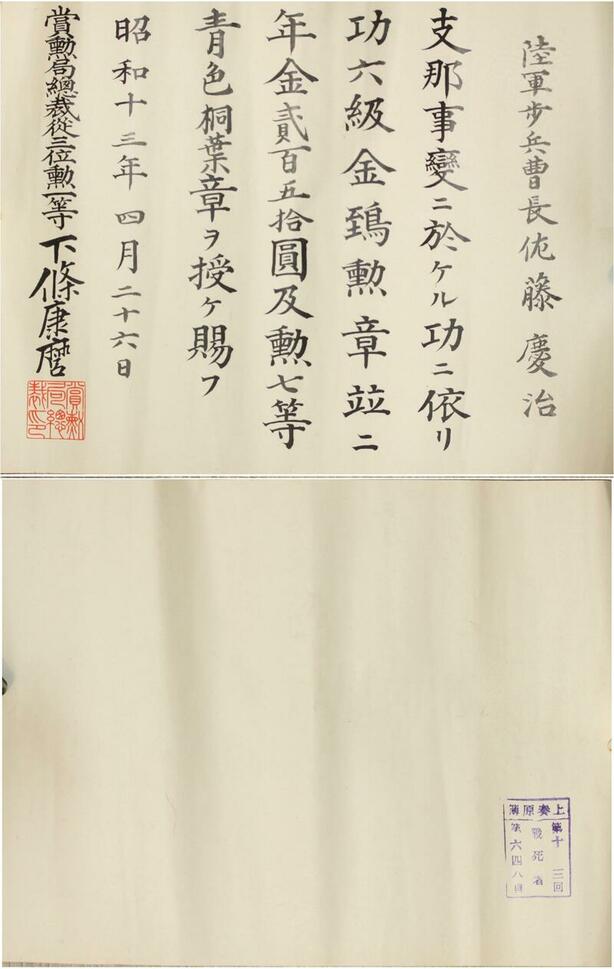 陸軍步兵曹長佐藤慶治
支那事變ニ於ケル功ニ依リ
功六級金鵄勲章竝ニ
年金貳百五拾圓及勲七等
青色桐葉章ヲ授ケ賜フ
昭和十三年四月二十六日
賞勲局總裁從三位勲一等下條康麿
賞勲局總裁印
上奏原簿
第十三回
戰死者
第六四八頁